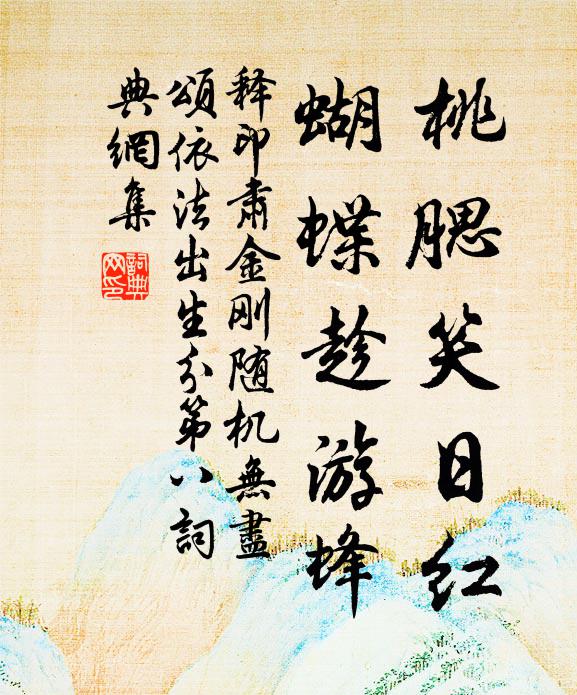 桃腮笑日红
蝴蝶趁游蜂
释印肃金刚随机無盡
頌依法出生分第八詞
典網集
詞典
网印